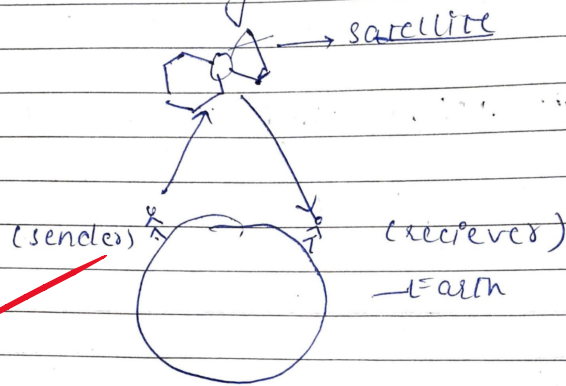 satellite
(sender) (reciever)
Earth